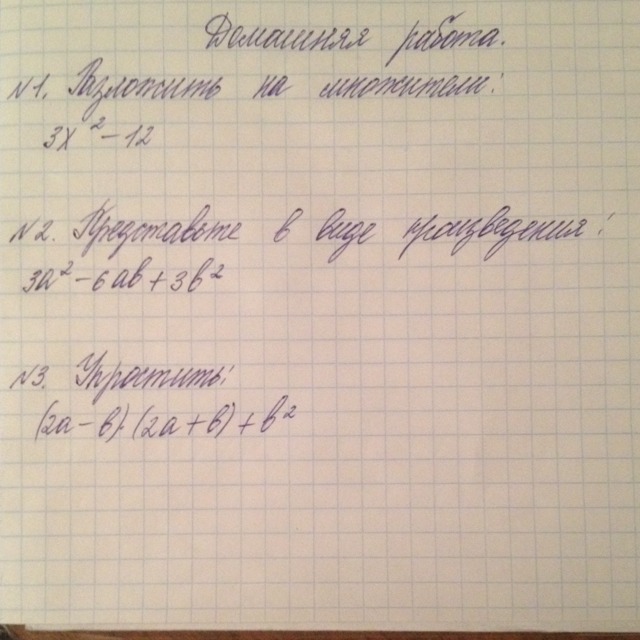 Домашняя работа.
N1. Разложить на множители:
3x² - 12
N2. Представьте в виде произведения:
3a² - 6ab + 3b²
N3. Упростить:
(2a - b)·(2a + b) + b²